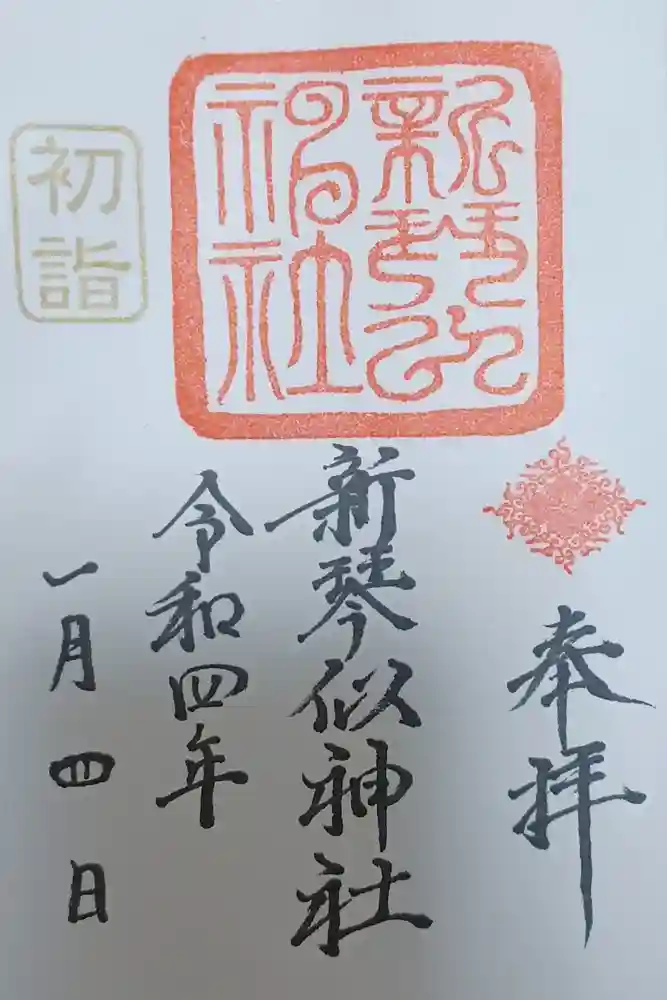 奉拝
新琴似神社
新琴似神社
令和四年
一月四日
初詣